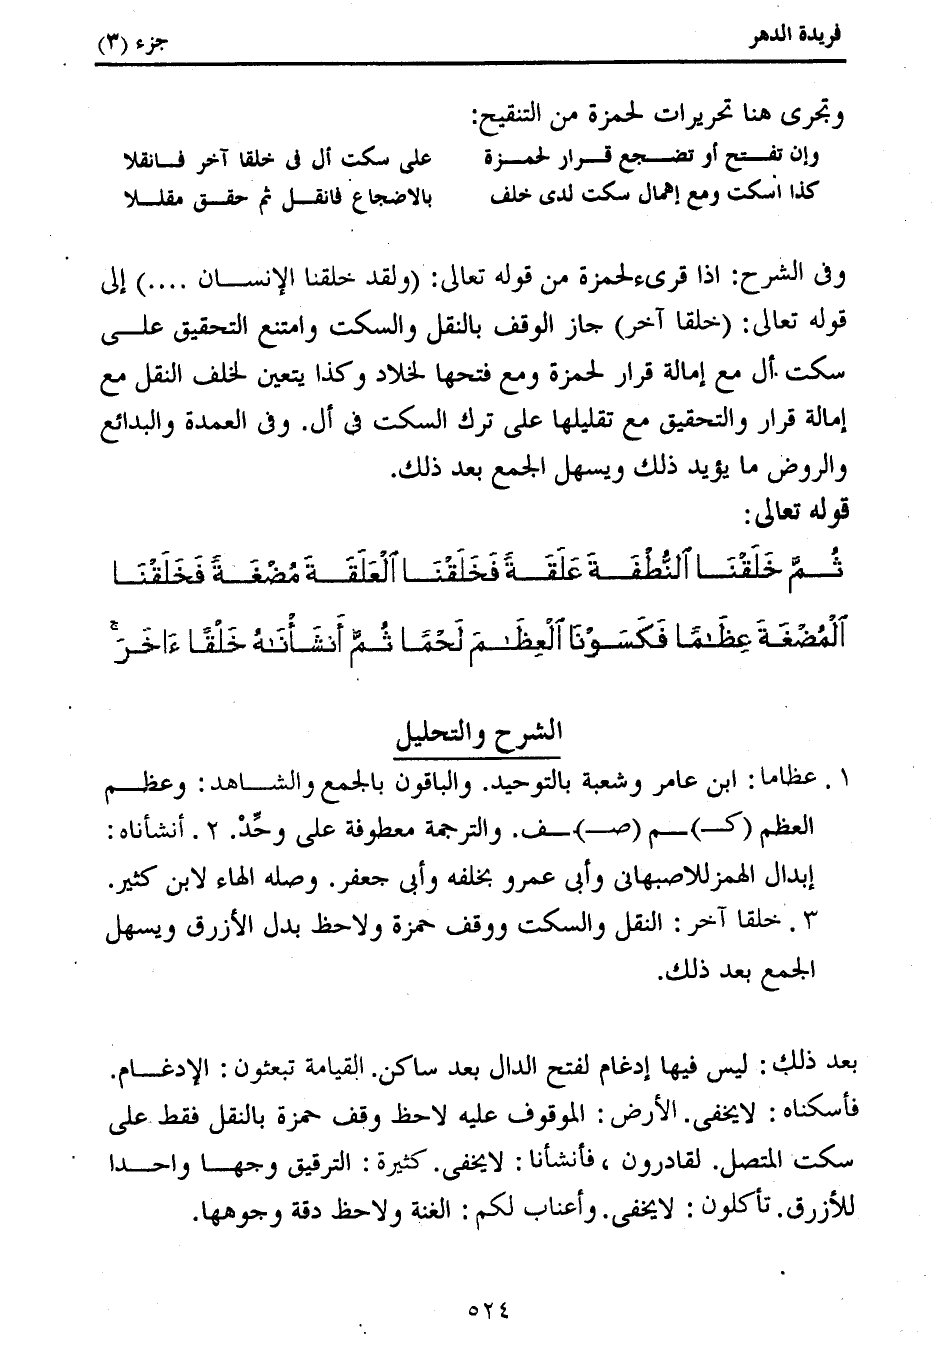 فريدة الدهر
جزء (٣)
وتجرى هنا تحريرات لحمزة من التنقيح:
وإن تفتح أو تضجع قرار لحمزة على سكت أل فى خلقا آخر فانقلا
كذا اسكت ومع إهمال سكت لدى خلف بالاضجاع فانقل ثم حقق مقللا
وفى الشرح: اذا قرىء لحمزة من قوله تعالى: (ولقد خلقنا الإنسان ....) إلى
قوله تعالى: (خلقا آخر) جاز الوقف بالنقل والسكت وامتنع التحقيق على
سكت أل مع إمالة قرار لحمزة ومع فتحها لخلاد وكذا يتعين لخلف النقل مع
إمالة قرار والتحقيق مع تقليلها على ترك السكت فى أل. وفى العمدة والبدائع
والروض ما يؤيد ذلك ويسهل الجمع بعد ذلك.
قوله تعالى:
ثُمَّ خَلَقْنَا ٱلنُّطْفَةَ عَلَقَةً فَخَلَقْنَا ٱلْعَلَقَةَ مُضْغَةً فَخَلَقْنَا
ٱلْمُضْغَةَ عِظَٰمًا فَكَسَوْنَا ٱلْعِظَٰمَ لَحْمًا ثُمَّ أَنشَأْنَٰهُ خَلْقًا ءَاخَرَۚ
الشرح والتحليل
١. عظاما: ابن عامر وشعبة بالتوحيد. والباقون بالجمع والشاهد: وعظم
العظم (كـ)ـم (صـ)ـف. والترجمة معطوفة على وحِّدْ. ٢. أنشأناه:
إبدال الهمز للاصبهانى وأبى عمرو بخلفه وأبى جعفر. وصله الهاء لابن كثير.
٣. خلقا آخر: النقل والسكت ووقف حمزة ولاحظ بدل الأزرق ويسهل
الجمع بعد ذلك.
بعد ذلك: ليس فيها إدغام لفتح الدال بعد ساكن. القيامة تبعثون: الإدغام.
فأسكناه: لايخفى. الأرض: الموقوف عليه لاحظ وقف حمزة بالنقل فقط على
سكت المتصل. لقادرون، فأنشأنا: لايخفى. كثيرة: الترقيق وجها واحدا
للأزرق. تأكلون: لايخفى. وأعناب لكم: الغنة ولاحظ دقة وجوهها.
٥٢٤